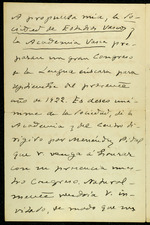 A propuesta mía, la So-
ciedad de Estudios Vascos y
la Academia Vasca pre-
paran un gran Congreso
de la Lengua euskara para
Septiembre del presente
año de 1922. Es deseo uná-
nime de la Sociedad, de la
Academia y del Centro di-
rigido por Menéndez Pidal
que V. venga á honrar
con su presencia nues-
tro Congreso. Natural-
mente vendría V. in-
vitado, de modo que